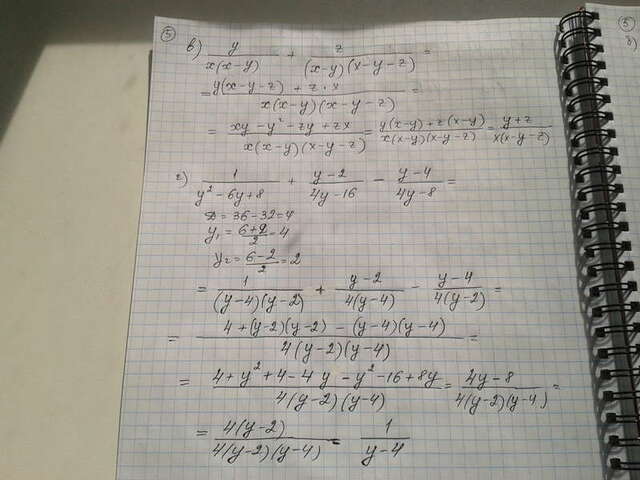 5
в) y/(x(x-y)) + z/((x-y)(x-y-z)) =
= (y(x-y-z) + z·x)/(x(x-y)(x-y-z)) =
= (xy-y²-zy+zx)/(x(x-y)(x-y-z)) = (y(x-y)+z(x-y))/(x(x-y)(x-y-z)) = (y+z)/(x(x-y-z))
г) 1/(y²-6y+8) + (y-2)/(4y-16) - (y-4)/(4y-8) =
D = 36-32=4
y₁ = (6+2)/2 = 4
y₂ = (6-2)/2 = 2
= 1/((y-4)(y-2)) + (y-2)/(4(y-4)) - (y-4)/(4(y-2)) =
= (4+(y-2)(y-2) - (y-4)(y-4))/(4(y-2)(y-4)) =
= (4+y²+4-4y-y²-16+8y)/(4(y-2)(y-4)) = (4y-8)/(4(y-2)(y-4)) =
= 4(y-2)/(4(y-2)(y-4)) = 1/(y-4)
5